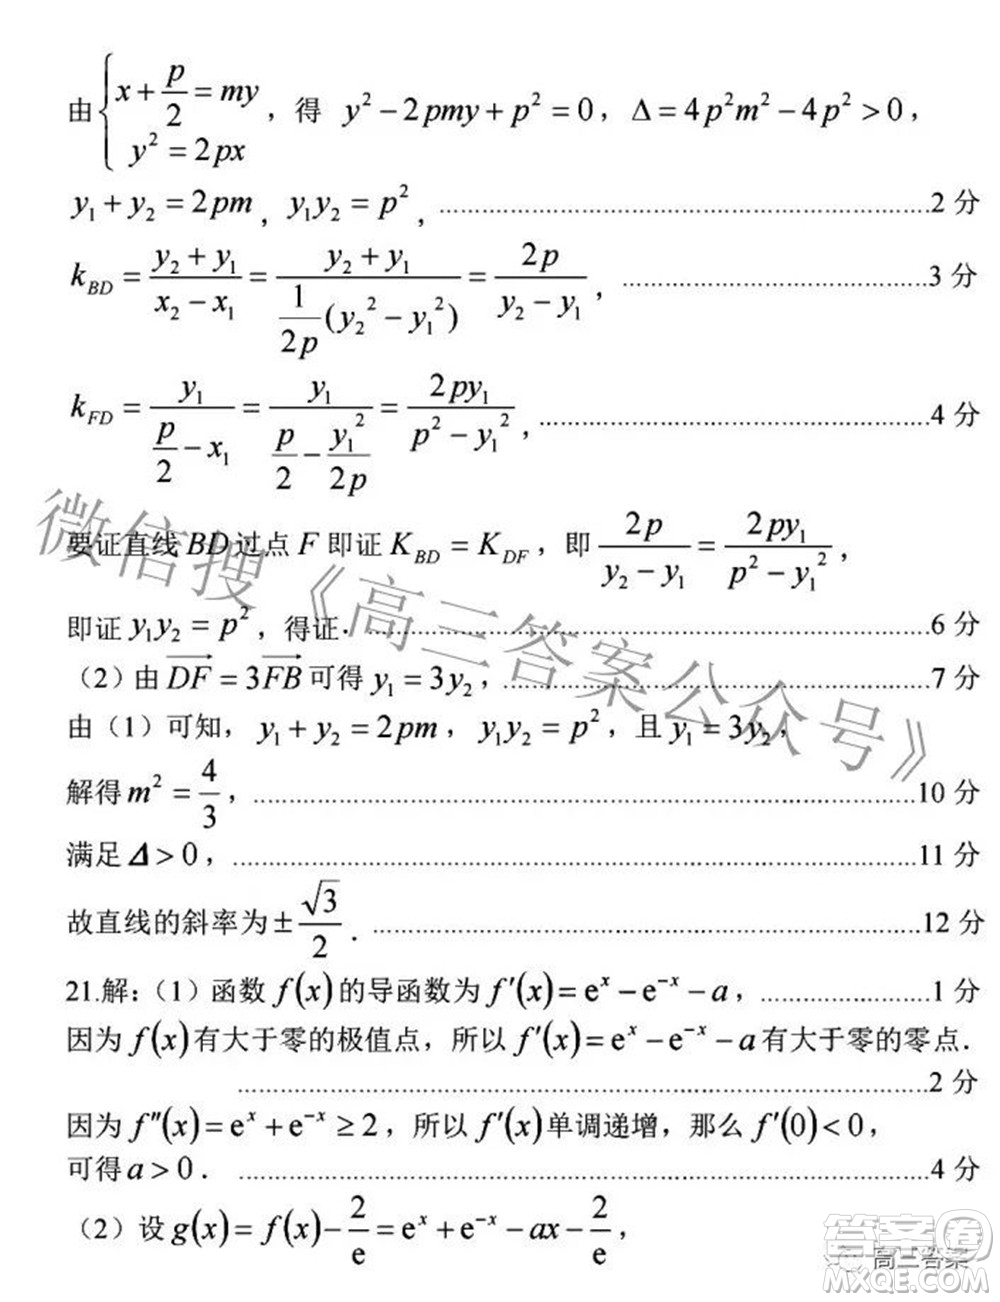 由{x+p/2=my, y²=2px ，得 y²−2pmy+p²=0，Δ=4p²m²−4p²>0，
y₁+y₂=2pm，y₁y₂=p²，……2 分
k_BD=(y₂+y₁)/(x₂−x₁)=(y₂+y₁)/((1/2p)(y₂²−y₁²))=2p/(y₂−y₁)，……3 分
k_FD=y₁/(p/2−x₁)=y₁/(p/2−y₁²/2p)=2py₁/(p²−y₁²)，……4 分
要证直线BD过点F即证K_BD=K_DF，即2p/(y₂−y₁)=2py₁/(p²−y₁²)，
即证y₁y₂=p²，得证．……6 分
（2）由DF→=3FB→可得y₁=3y₂，……7 分
由（1）可知，y₁+y₂=2pm，y₁y₂=p²，且y₁=3y₂，
解得m²=4/3，……10 分
满足Δ>0，……11 分
故直线的斜率为±√3/2．……12 分
21.解：（1）函数f(x)的导函数为f′(x)=eˣ−e⁻ˣ−a，……1 分
因为f(x)有大于零的极值点，所以f′(x)=eˣ−e⁻ˣ−a有大于零的零点．
……2 分
因为f″(x)=eˣ+e⁻ˣ≥2，所以f′(x)单调递增，那么f′(0)<0，
可得a>0．……4 分
（2）设g(x)=f(x)−2/e=eˣ+e⁻ˣ−ax−2/e，
微信搜《高三答案公众号》
高三答案
答案圈
MXQE.COM